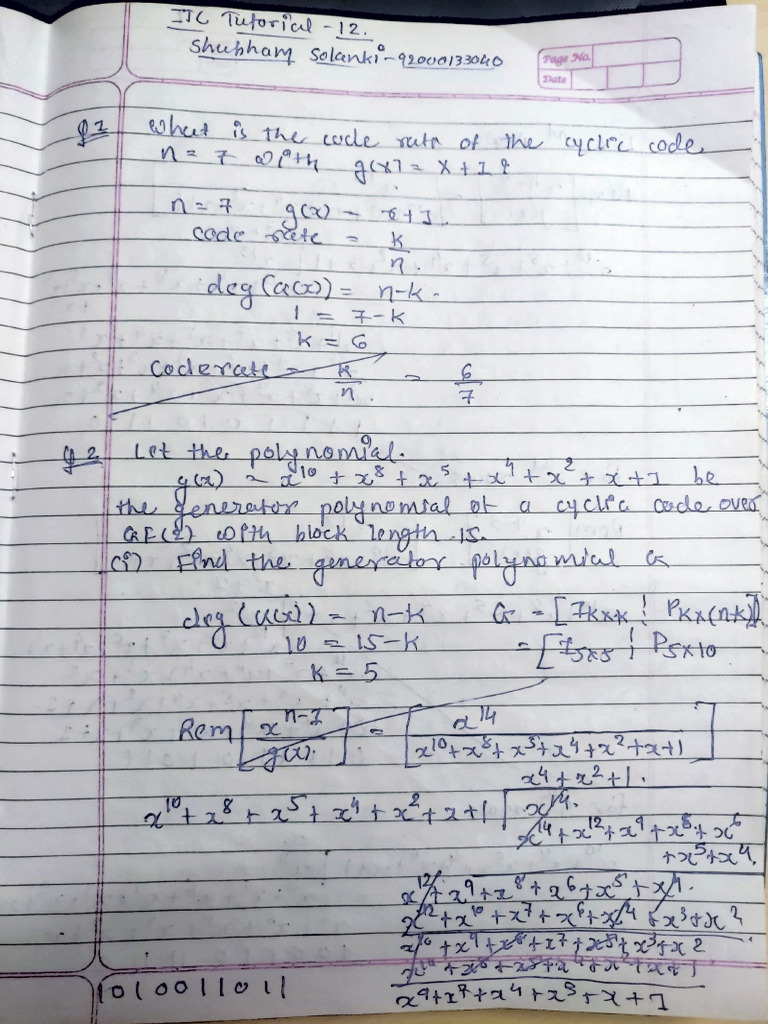 IJC Tutorial - 12.
Shubham Solanki - 92000133040
Page No.
Date
Q1 What is the code rate of the cyclic code
n = 7 with g(x) = x + 1 ?
n = 7 g(x) = x+1.
code rate = k/n.
deg (G(x)) = n-k.
1 = 7-k
k = 6
code rate = k/n = 6/7
Q2 Let the polynomial.
g(x) = x¹⁰ + x⁸ + x⁵ + x⁴ + x² + x + 1 be
the generator polynomial of a cyclic code over
GF(2) with block length .15.
(i) Find the generator polynomial G
deg (G(x)) = n-k G = [I k×k ¦ P k×(n-k)]
10 = 15-k = [I 5×5 ¦ P 5×10
k = 5
Rem [x^(n-1) / g(x)] = [x¹⁴ / x¹⁰+x⁸+x⁵+x⁴+x²+x+1]
x⁴+x²+1.
x¹⁰+x⁸+x⁵+x⁴+x²+x+1 x¹⁴.
x¹⁴+x¹²+x⁹+x⁸+x⁶
+x⁵+x⁴.
x¹²+x⁹+x⁸+x⁶+x⁵+x⁴.
x¹²+x¹⁰+x⁷+x⁶+x⁴+x³+x²
x¹⁰+x⁹+x⁸+x⁷+x⁵+x³+x²
x¹⁰+x⁸+x⁵+x⁴+x²+x+1
1010011011 x⁹+x⁷+x⁴+x³+x+1